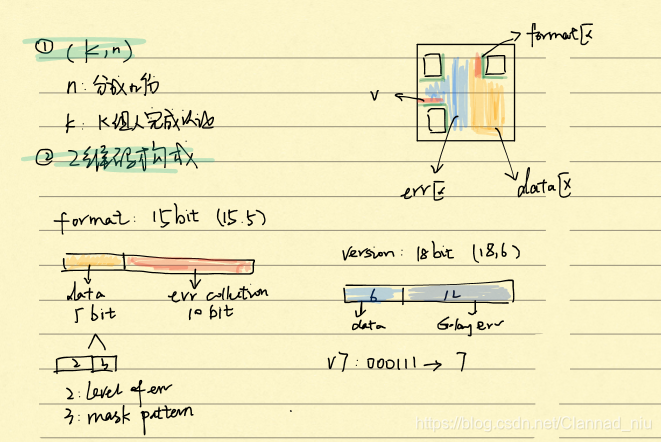 ① (k,n)
n: 分成n份
k: K组人完成认证
② 2维码构成
format区
V
err区
data区
format: 15bit (15.5)
data
5 bit
err collection
10 bit
2 3
2: level of err
3: mask pattern
version: 18bit (18,6)
6 12
data
Golay err
V7: 000111 → 7
https://blog.csdn.net/Clannad_niu